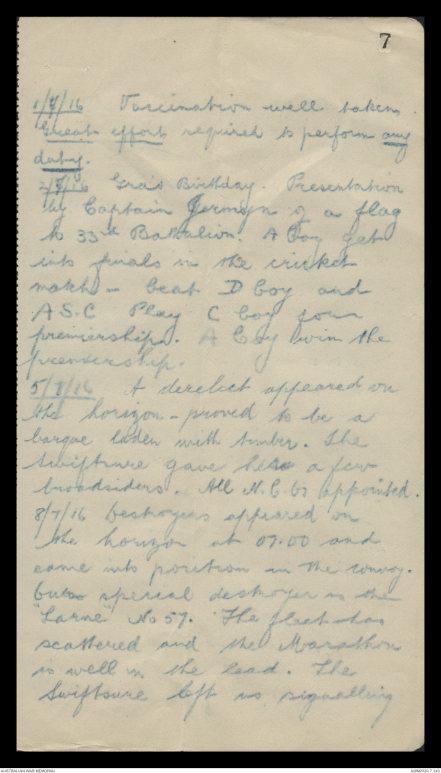 7
1/7/16 Vaccination well taken.
Great effort required to perform any
duty.
2/7/16 Gra's Birthday. Presentation
by Captain Jermyn of a flag
to 33rd Battalion. A Coy get
into finals in the cricket
match - beat D Coy and
A.S.C Play C Coy
premierships. A Coy win the
premiership.
5/7/16 A derelict appeared on
the horizon - proved to be a
barque laden with timber. The
Swiftsure gave her a few
broadsiders. All N.C.O's appointed.
8/7/16 Destroyers appeared on
the horizon at 07.00 and
came into position in the convoy.
special destroyer is the
"Larne" No 57. The fleet has
scattered and the Marathon
is well in the lead. The
Swiftsure left us signalling
AUSTRALIAN WAR MEMORIAL